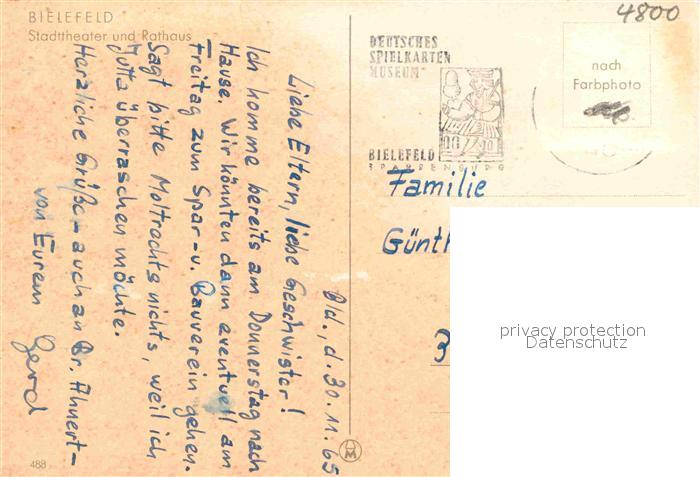 BIELEFELD
Stadttheater und Rathaus
Bld., d. 30.11.65
Liebe Eltern, liebe Geschwister!
Ich komme bereits am Donnerstag nach
Hause. Wir könnten dann eventuell am
Freitag zum Spar- u. Bauverein gehen.
Sagt bitte Moltrechts nichts, weil ich
Jutta überraschen möchte.
Herzliche Grüße – auch an Br. Ahnert –
von Eurem Gerd
488
DEUTSCHES
SPIELKARTEN
MUSEUM
BIELEFELD
SPARRENBURG
4800
nach
Farbphoto
Familie
Günth
privacy protection
Datenschutz